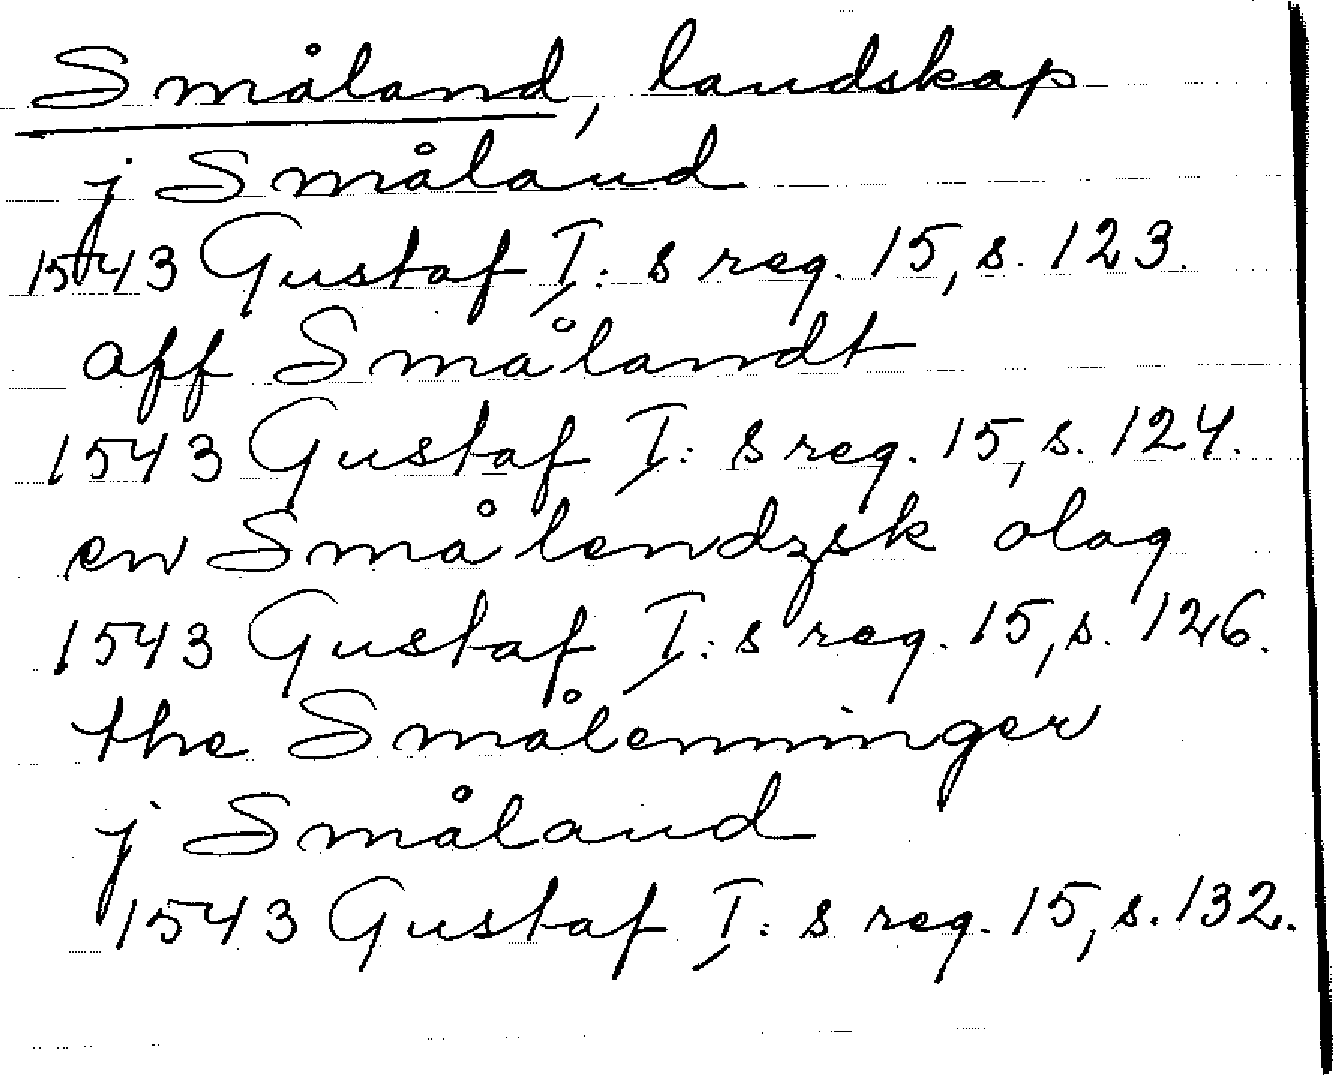 Småland, landskap
j Småland
1543 Gustaf I: s reg. 15, s. 123.
aff Smålandt
1543 Gustaf I: s reg. 15, s. 124.
en Smålendzsk olag
1543 Gustaf I: s reg. 15, s. 126.
the Smålenninger
j Småland
1543 Gustaf I: s reg. 15, s. 132.